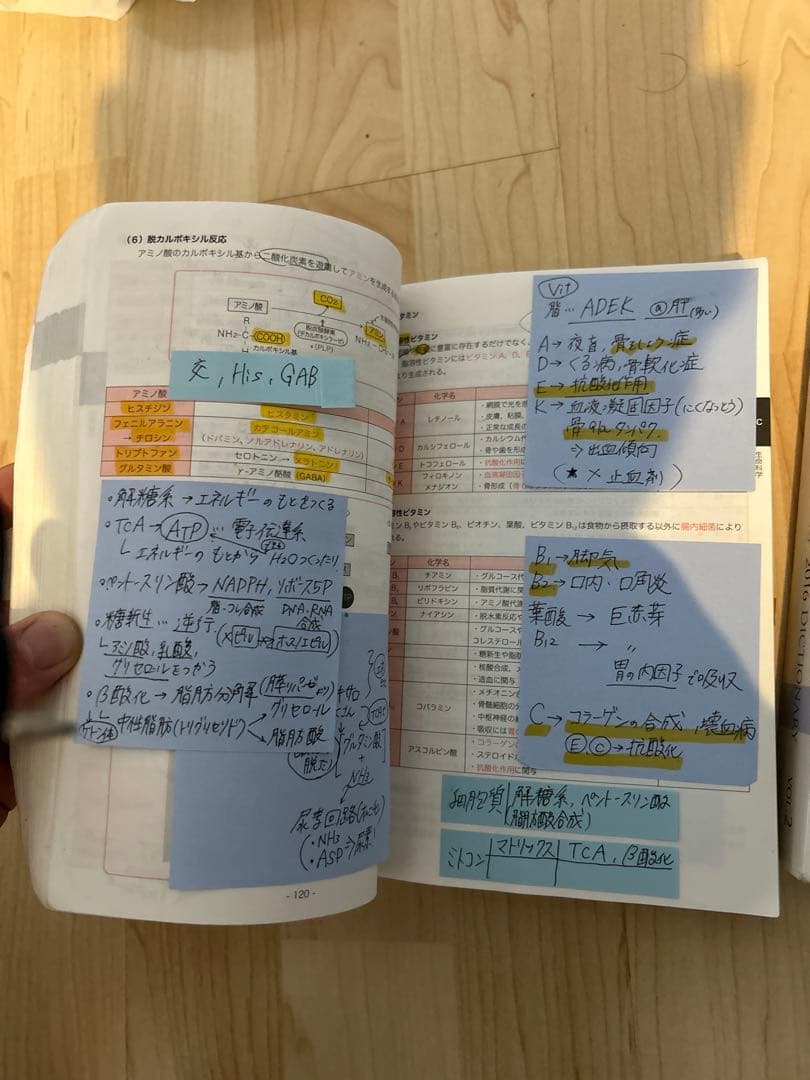 (6) 脱カルボキシル反応
アミノ酸のカルボキシル基から二酸化炭素を遊離してアミンを生成する
アミノ酸
CO₂
アミン
R
NH₂-C-COOH
カルボキシル基
脱炭酸酵素
(デカルボキシラーゼ)
+(PLP)
NH₂-CH-R
H
交, His, GAB
アミノ酸
ヒスチジン
ヒスタミン
フェニルアラニン
→ チロシン
カテコールアミン
(ドパミン、ノルアドレナリン、アドレナリン)
トリプトファン
セロトニン → メラトニン
グルタミン酸
γ-アミノ酪酸 (GABA)
・解糖系→エネルギーのもとをつくる
・TCA→ATP… 電子伝達系
エネルギーのもとから H₂Oつくったり
・ペントースリン酸→NADPH, リボース5P
脂・コレ合成 DNA・RNA合成
・糖新生… 逆行
アミノ酸, 乳酸,
グリセロールをつかう
・β酸化→脂肪分解 (膵リパーゼ)
中性脂肪(トリグリセリド)
グリセロール
脂肪酸
グルタミン酸
+
NH₃
尿素回路
・NH₃
・ASP⇒尿素
- 120 -
Vit
脂… ADEK @肝(多い)
A→夜盲, 骨そしょう症
D→くる病, 骨軟化症
E→抗酸化作用
K→血液凝固因子(にくなっとう)
骨のタンパク
⇒出血傾向
(★× 止血剤)
ビタミン
性ビタミン
に豊富に存在するだけでなく、
脂溶性ビタミンにはビタミン A、D、E
より生成される。
化学名
A
レチノール
・網膜で光を感
・皮膚、粘膜、
・正常な成長の
D
カルシフェロール
・カルシウム代
・骨や歯を形成
E
トコフェロール
・抗酸化作用に
K
フィロキノン
メナジオン
・血液凝固因子
・骨形成
溶性ビタミン
ミン B₁やビタミン B₆、ビオチン、葉酸、ビタミン B₁₂は食物から摂取する以外に腸内細菌により
れる。
化学名
B₁
チアミン
・グルコース代
B₂
リボフラビン
・脂質代謝に関
B₆
ピリドキシン
・アミノ酸代謝
ナイアシン
・脱水素反応や
・グルコースや
コレステロール
・糖新生や脂肪
・核酸合成、
・造血に関与
コバラミン
・メチオニンが
・骨髄細胞の分
・中枢神経の
・吸収には胃
アスコルビン酸
・コラーゲンの
・ステロイド
・抗酸化作用に関与
B₁→脚気
B₂→口内・口角炎
葉酸→ 巨赤芽
B₁₂→ 〃
胃の内因子で吸収
C→コラーゲンの合成, 壊血病
Ⓔ Ⓒ→抗酸化
細胞質 解糖系, ペントースリン酸
(脂肪酸合成)
ミトコン マトリックス TCA, β酸化
C
生命科学
2016 DICTIONARY VOL. 2